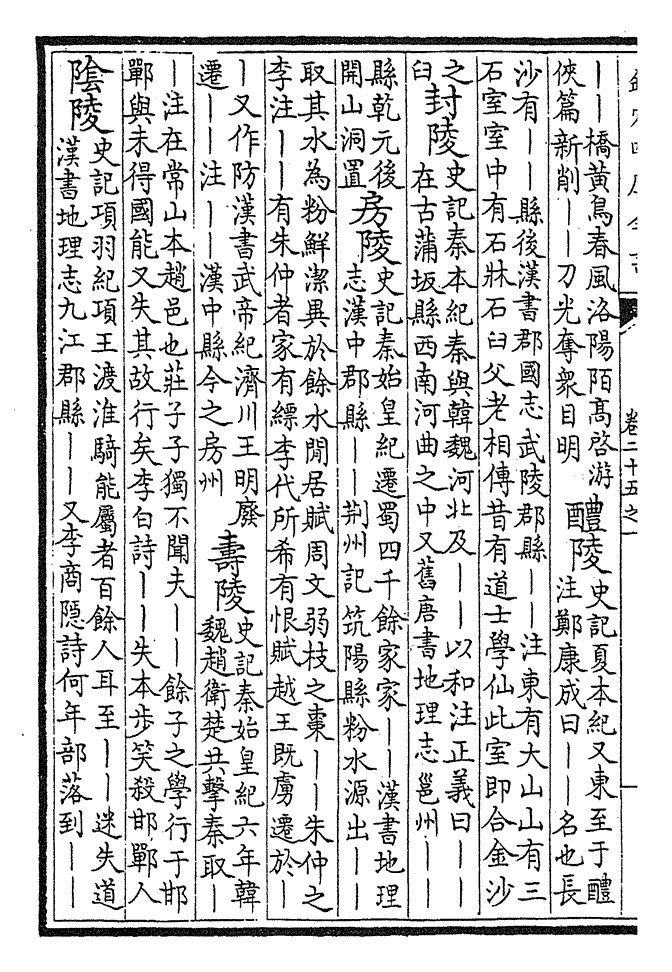 欽定四庫全書
卷二十五之一
――橋黃鳥春風洛陽陌高啓游
俠篇新削――刀光奪衆目明
醴陵
史記夏本紀又東至于醴
注鄭康成曰――名也長
沙有――縣後漢書郡國志武陵郡縣――注東有大山山有三
石室室中有石牀石臼父老相傳昔有道士學仙此室即合金沙
之
臼
封陵
史記秦本紀秦與韓魏河北及――以和注正義曰――
在古蒲坂縣西南河曲之中又舊唐書地理志邕州――
縣乾元後
開山洞置
房陵
史記秦始皇紀遷蜀四千餘家家――漢書地理
志漢中郡縣――荆州記筑陽縣粉水源出――
取其水為粉鮮潔異於餘水閒居賦周文弱枝之棗――朱仲之
李注――有朱仲者家有縹李代所希有恨賦越王既虜遷於―
―又作防漢書武帝紀濟川王明廢
遷――注――漢中縣今之房州
壽陵
史記秦始皇紀六年韓
魏趙衛楚共擊秦取―
―注在常山本趙邑也莊子子獨不聞夫――餘子之學行于邯
鄲與未得國能又失其故行矣李白詩――失本步笑殺邯鄲人
陰陵
史記項羽紀項王渡淮騎能屬者百餘人耳至――迷失道
漢書地理志九江郡縣――又李商隐詩何年部落到――